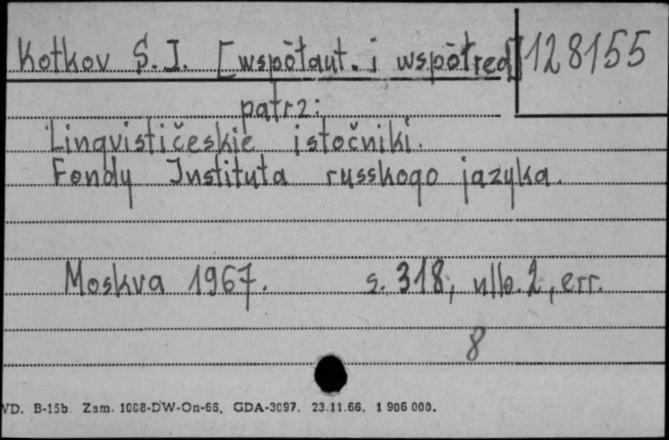 Kotkov S.I. [współaut. i współred] 128155
patrz:
Lingvističeskie istočniki.
Fondy Instituta russkogo jazyka.
Moskva 1967. s. 318, nlb. 2, err.
8
VD. B-15b. Zam. 1008-DW-On-66. GDA-3097. 23.11.66. 1 906 000.